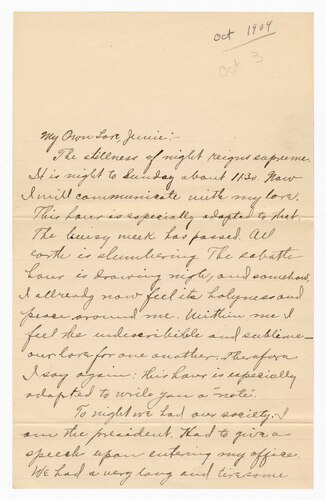 Oct 1904
Oct 3
My Own Love, Jennie:-
The stillness of night reigns supreme.
It is night to Sunday about 1130. Now
I will communicate with my love.
This hour is especially adapted to that.
The busy week has passed. All
earth is slumbering. The sabbath
hour is drawing nigh, and somehow,
I allready now feel its holyness and
peace around me. Within me I
feel the undescribible and sublime—
our love for one another. Therefore
I say again: this hour is especially
adapted to write you a "note."
To night we had our society. I
am the president. Had to give a
speech upon entering my office.
We had a very long and